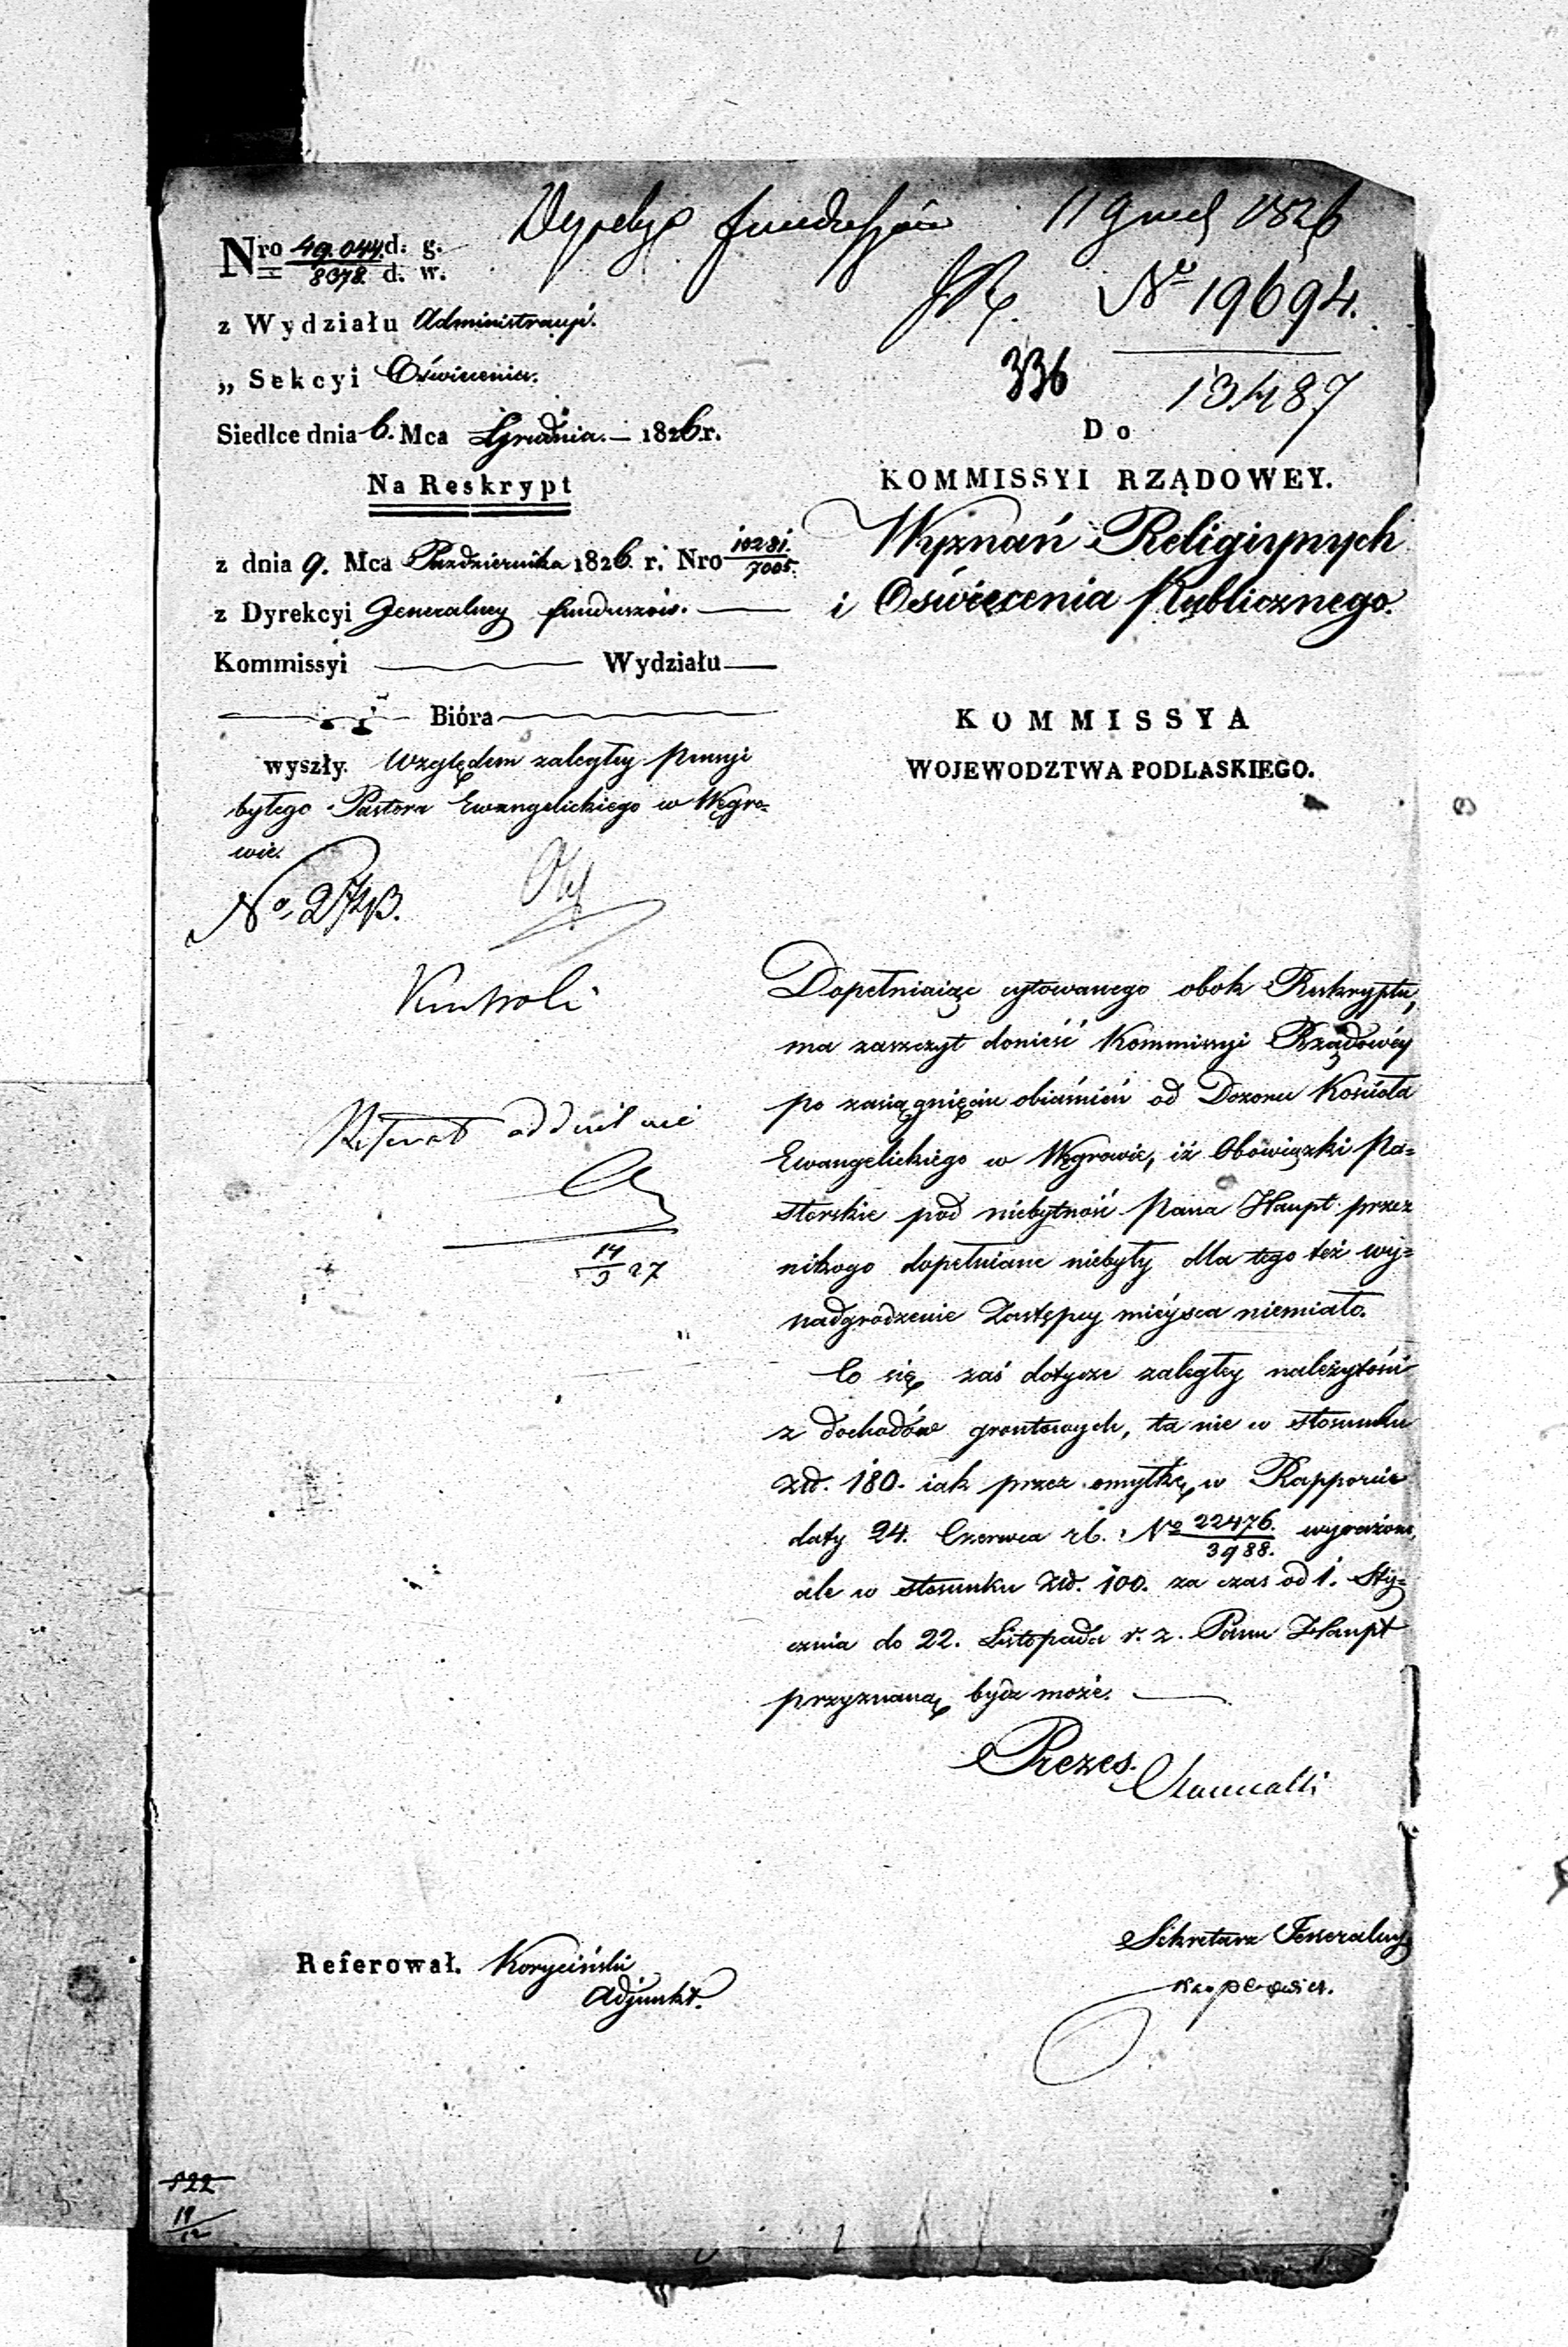 Dyrekcya funduszów 11 Grud 1826
Nro 49.044. d. g.
8378. d. w.
No 19694.
13487
336
z Wydziału Administracyi.
„ Sekcyi Oświecenia.
Siedlce dnia 6. Mca Grudnia. — 1826 r.
Na Reskrypt
z dnia 9. Mca Października 1826. r. Nro 10281.
7005.
z Dyrekcyi Generalney funduszów.
Kommissyi Wydziału
Bióra
wyszły. względem zaległey pensyi
byłego Pastora Ewangelickiego w Węgro=
wie.
No. 2743.
Kontroli
Referat oddzielnie
14
3 27
Do
KOMMISSYI RZĄDOWEY.
Wyznań Religiynych
i Oświecenia Publicznego.
KOMMISSYA
WOJEWODZTWA PODLASKIEGO.
Dopełniaiąc cytowanego obok Reskryptu,
ma zaszczyt donieść Kommissyi Rządowéy
po zasiągnięciu obiaśnień od Dozoru Kościoła
Ewangelickiego w Węgrowie, iż Obowiązki Pa=
storskie pod niebytność Pana Haupt przez
nikogo dopełniane niebyły dla tego też wy=
nadgrodzenie Zastępcy mieysca niemiało.
Co się zaś dotycze zaległey należytości
z dochodów gruntowych, ta nie w stosunku
Złł. 180. iak przez omyłkę w Rapporcie
daty 24. Czerwca rb. No 22476. wyrażono,
3988.
ale w stosunku Złł. 100. za czas od 1. Sty=
cznia do 22. Listopada r. z. Panu Haupt
przyznaną bydź może.
Prezes.
Sekretarz Generalny
Referował. Koryciński
Adjunkt.
822
19
12